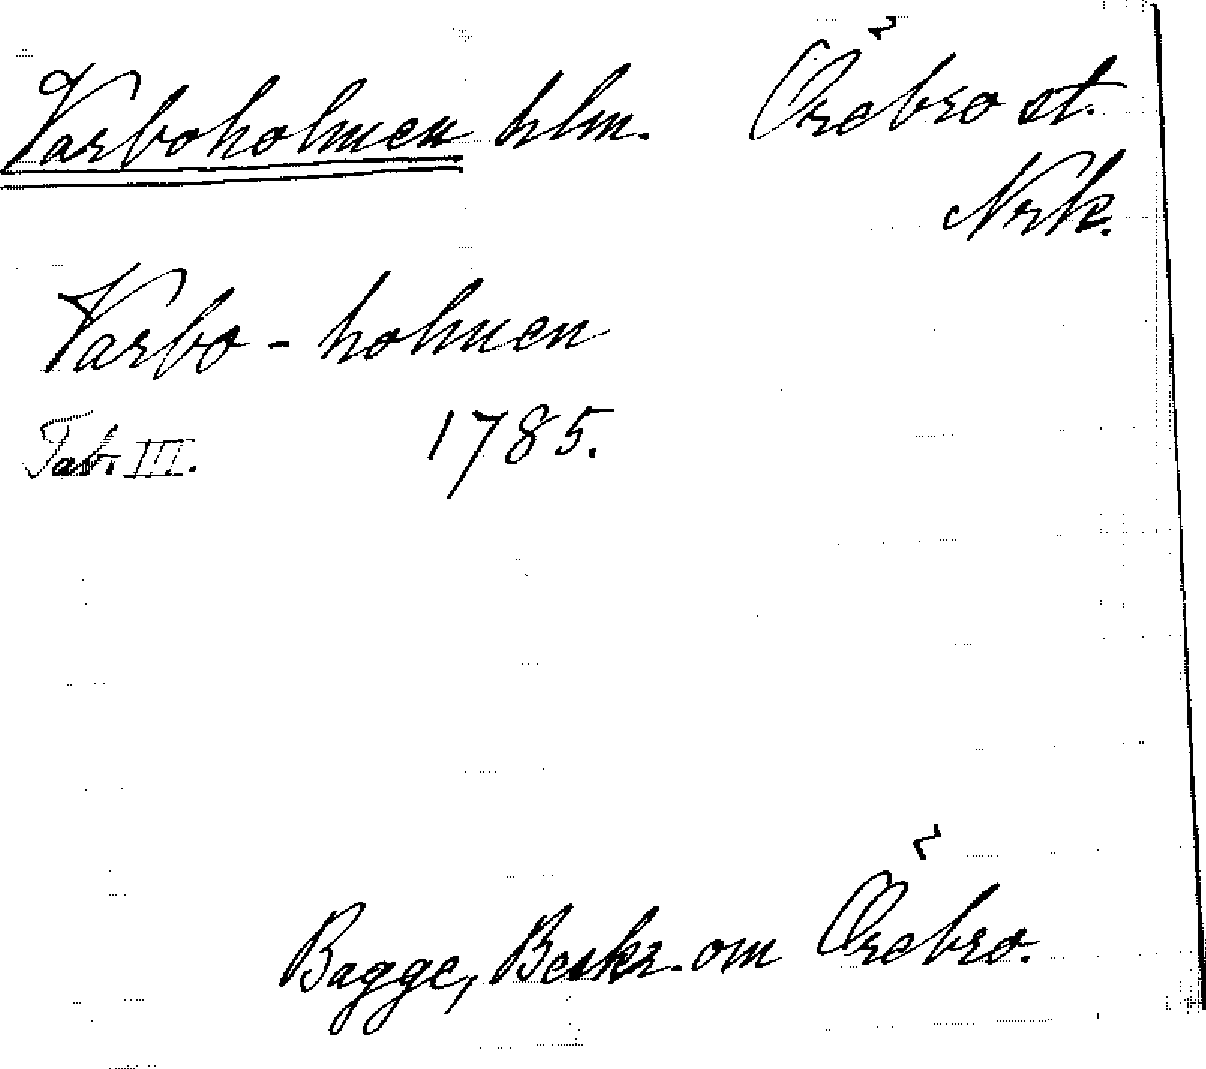 Varboholmen hlm. Örebro st.
Nrk.
Varbo-holmen
Tab. III. 1785.
Bagge, Beskr. om Örebro.